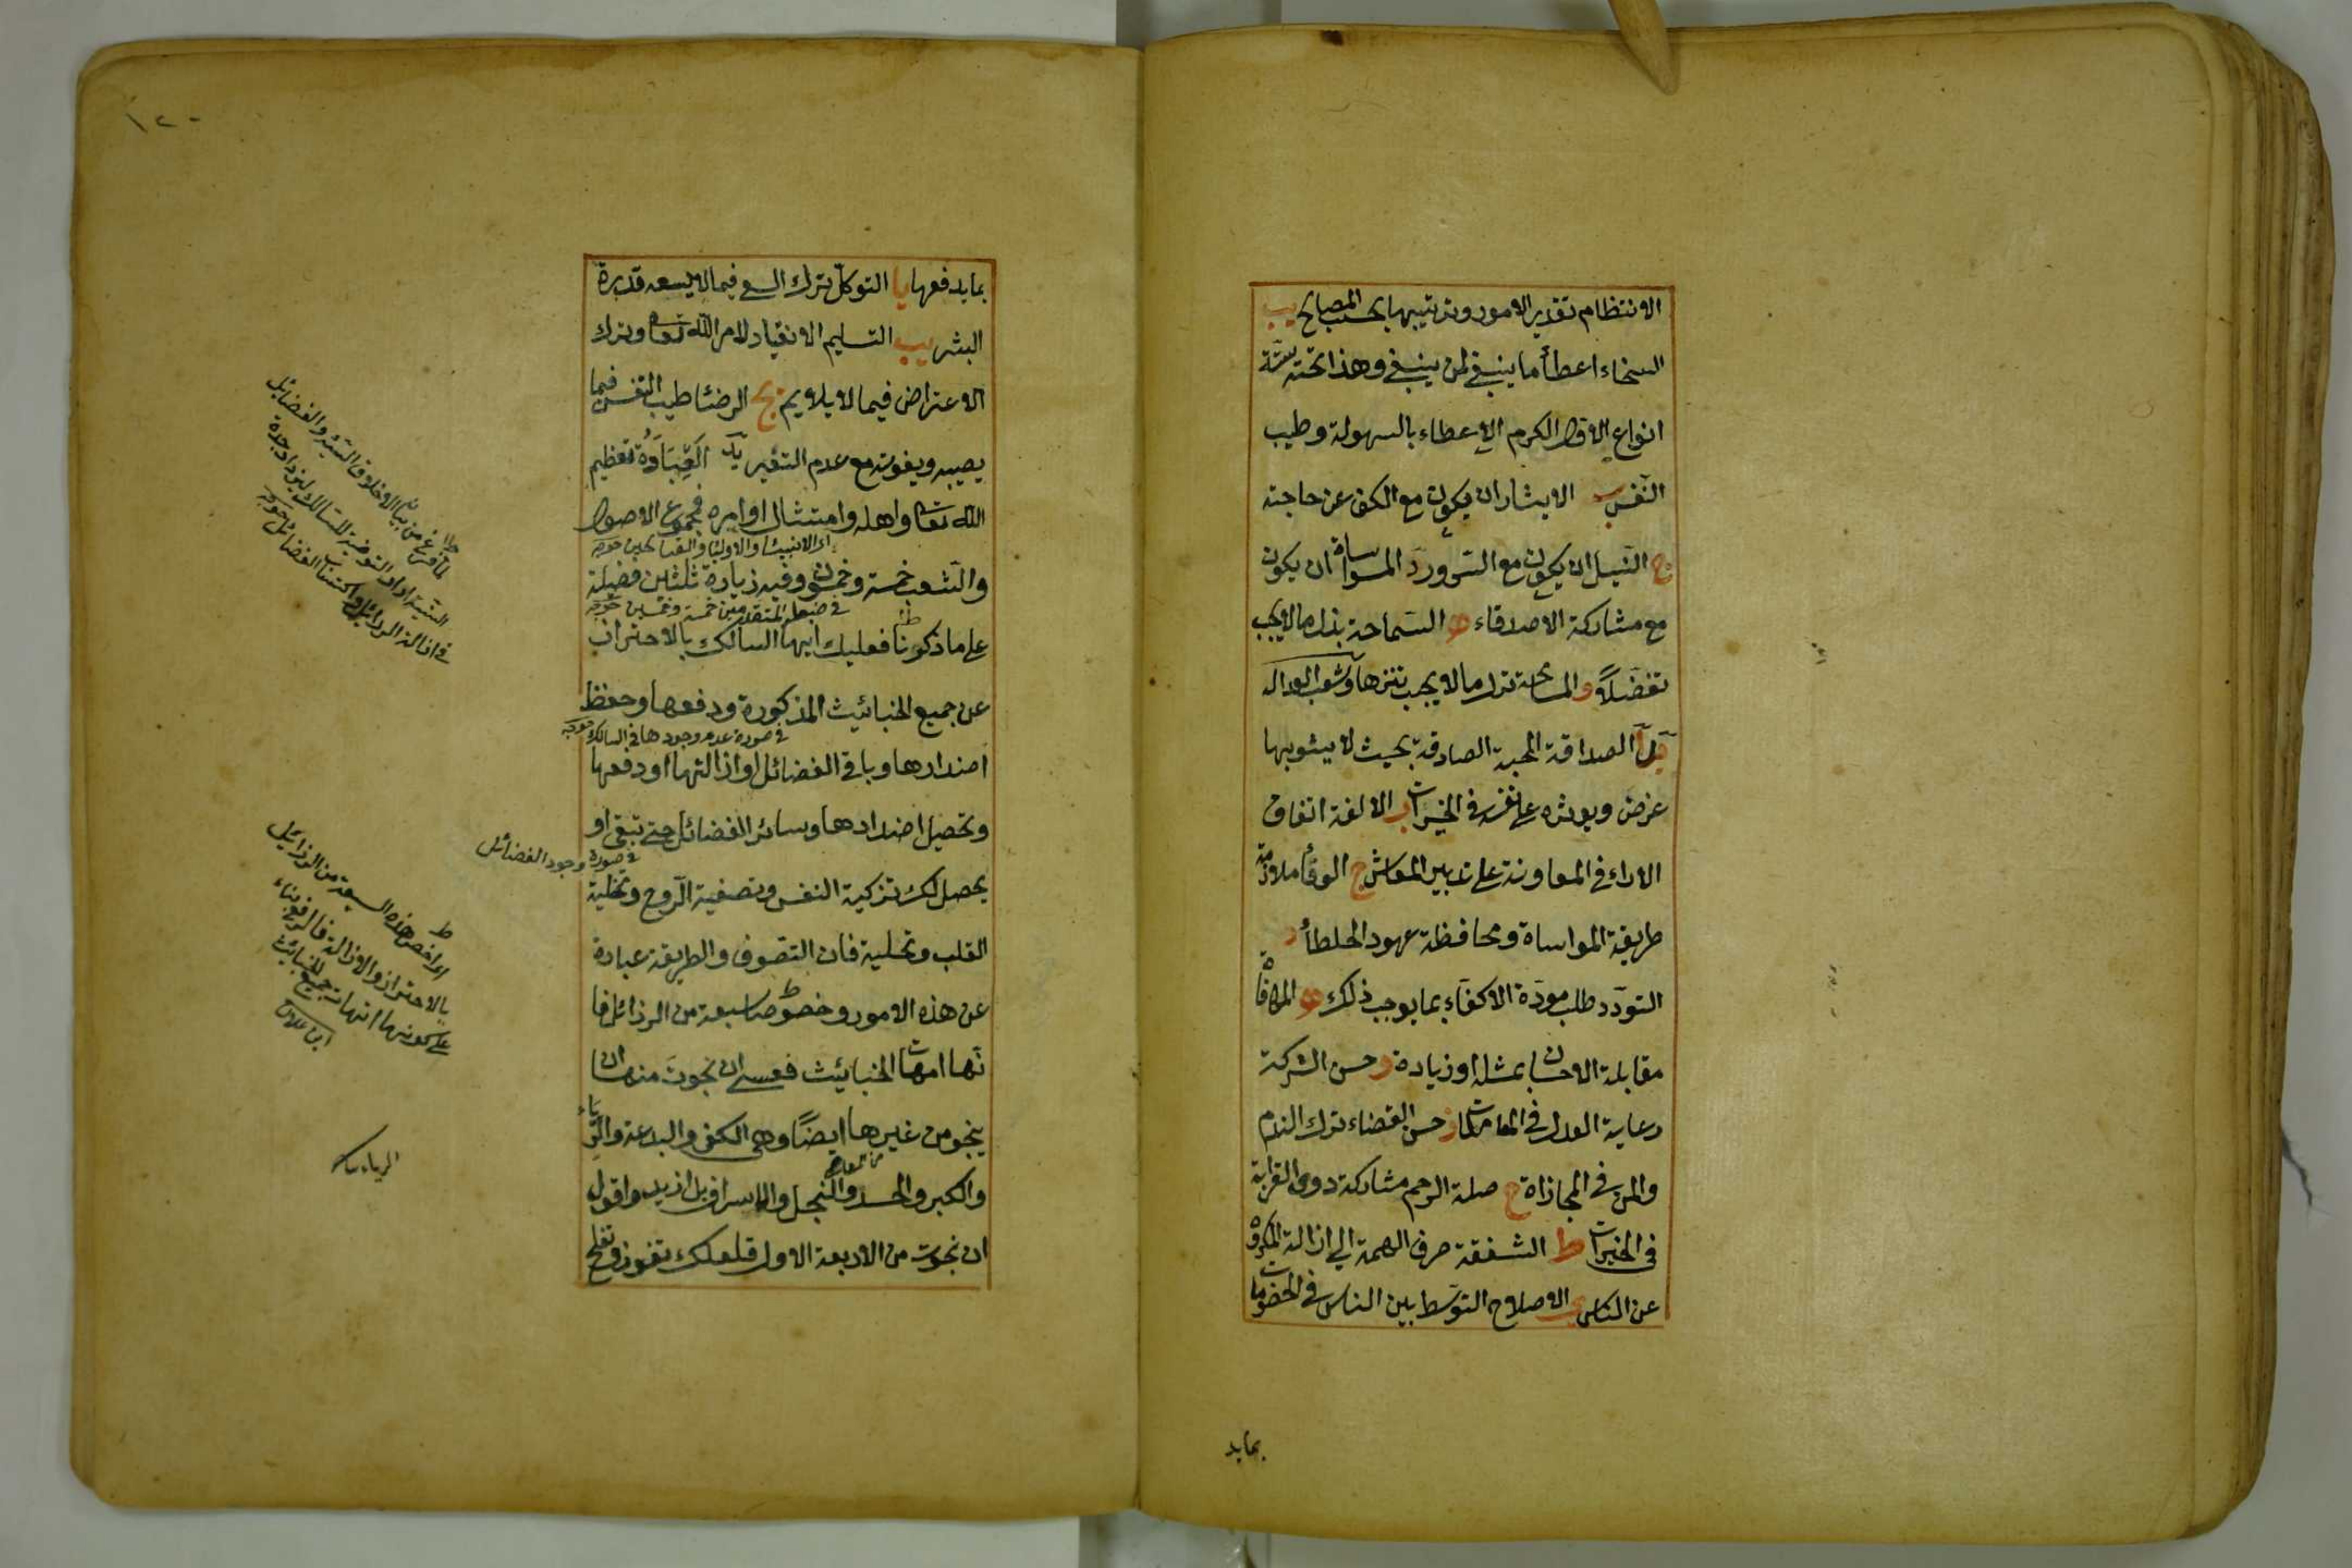 الانتظام تقدير الامور وترتيبها بحسب المصالح يب
السخاء اعطأ ما ينبغي لمن ينبغي وهذا تحته ستة
انواع الاول الكرم الاعطاء بالسهولة وطيب
النفس ب الايثار ان يكون مع الكف عن حاجته
ج النيل ان يكون مع السرور د المواساة ان يكون
مع مشاركة الاصدقاء ه السماحة بذل ما لا يجب
تفضلاً و المسامحة ترك ما لا يجب تنزها وشعب العدالة
يد آ الصداقة المحبة الصادقة بحيث لا يشوبها
غرض ويوثره على نفسه في الخيرات ب الالفة اتفاق
الاراء في المعاونة على تدبير المعاش ج الوفأ ملازمة
طريقة المواساة ومحافظة عهود الخلطأ د
التودد طلب مودة الاكفاء بما يوجب ذلك ه المكافاة
مقابلة الاحسان بمثله او زيادة و حسن الشركة
رعاية العدل في المعاملات ز حسن القضاء ترك الندم
والمن في المجازاة ح صلة الرحم مشاركة ذوى القرابة
في الخيرات ط الشفقة صرف الهمة الي ازالة المكروه
عن الناس ي الاصلاح التوسط بين الناس في الخصومات
بمايد
١٢٠
بما يدفعها يا التوكل ترك السعي فيما لا يسعه قدرة
البشر يب التسليم الانقياد لامر الله تعا وترك
الاعتراض فيما لا يلايم يج الرضا طيب النفس فيما
يصيبه ويفوته مع عدم التغير يد العِبَادَةُ تعظيم
الله تعا واهله وامتثال اوامره فمجموع الاصول
اى الانبيا والاوليا والصالحين
والشعب خمسة وخمسون وفيه زيادة ثلثين فضيلة
في ضبط المتقدمين خمسة وعشرين
على ما ذكرنا فعليك ايها السالك بالاحتراز
عن جميع الخبائيث المذكورة ودفعها وحفظ
في صورة عدم وجودها في السالك
اضدادها وباقي الفضائل او ازالتها او دفعها
وتحصيل اضدادها وسائر الفضائل حتى تبقى او
في صورة وجود الفضائل
يحصل لك تزكية النفس وتصفية الروح وتخلية
القلب وتحلية فان التصوف والطريقة عبارة
عن هذه الامور وخصوصا سبعة من الرذائل فا
نها امهات الخبائيث فعسى ان نجوت منها ان
ينجو من غيرها ايضاً وهي الكفر والبدعة والرياء
والكبر والحسد والبخل والاسراف بل ازيد واقول
ان نجوت من الاربعة الاول فلعلك تفوز وتفلح
لما فرغ من بيان الاخلاق السيئه والفضائل
السنية اراد التوصية للسالك
في ازالة الرذائل واكتساب الفضائل
اى اخص هذه السبعة من الرذائل
بالاحتراز والازالة
على كونها امهات جميع الخبائث